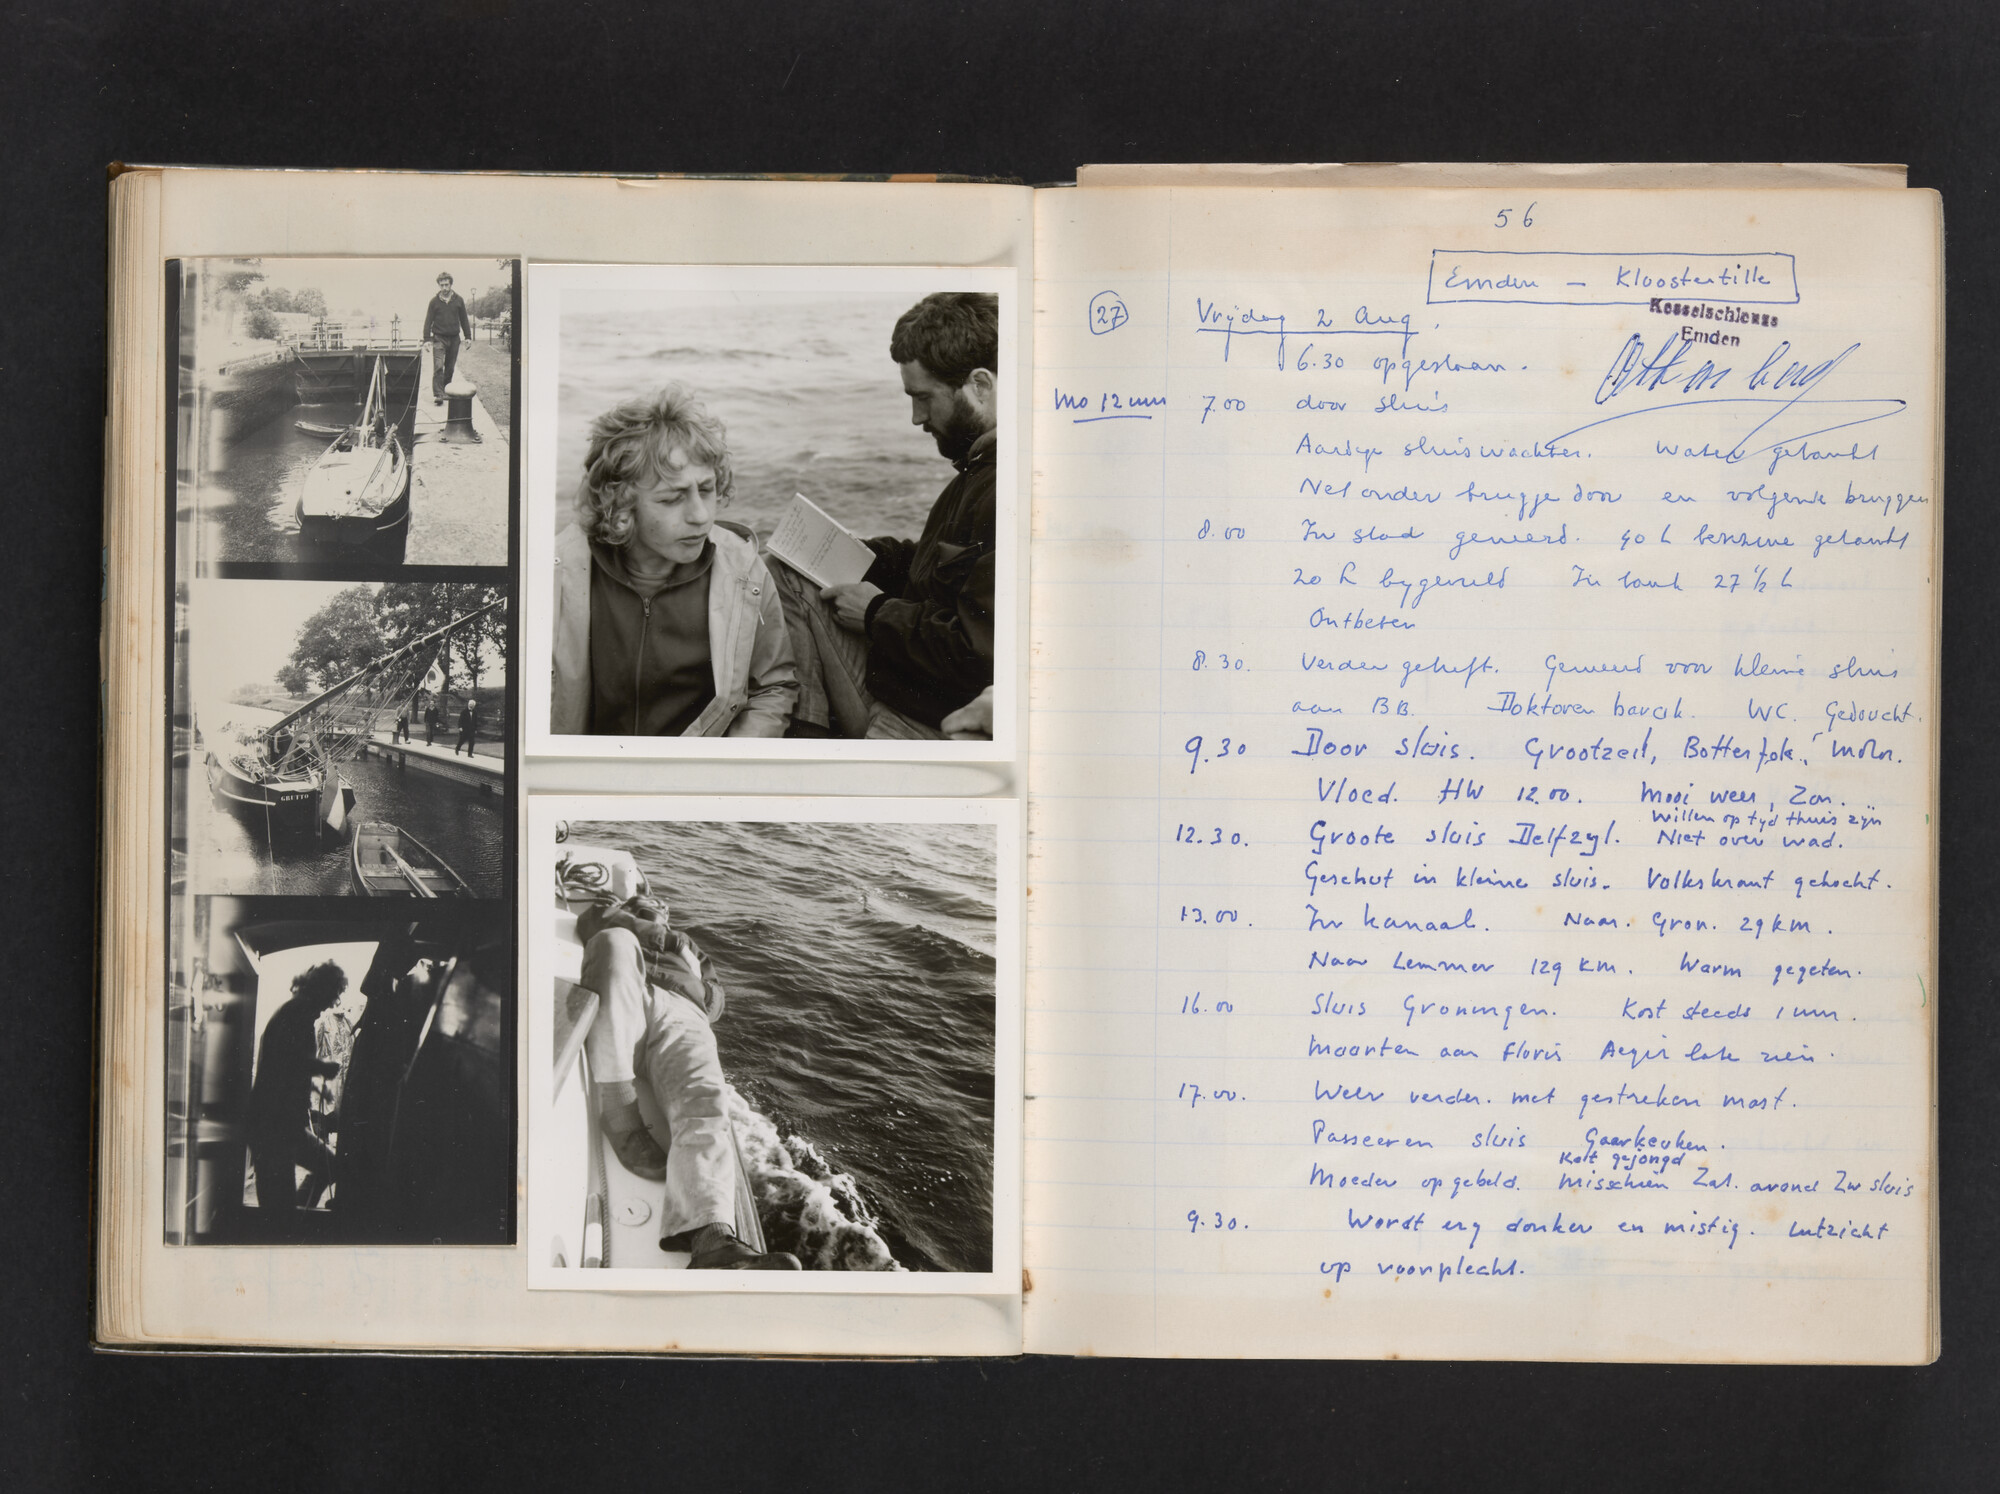 GRUTTO
56
Emden – Kloostertille
Kesselschleuse
Emden
27
Vrijdag 2 Aug.
6.30 opgestaan.
Mo 12 uur
7.00 door sluis
Aardige sluiswachter. Water getankt
Net onder brugje door en volgende bruggen
8.00 In stad gemeerd. 40 L benzine getankt
20 L bygevuld In tank 27 1/2 L
Ontbeten
8.30. Verder getuft. Gemeerd voor kleine sluis
aan BB. Doktoren barak. WC. Gedoucht.
9.30 Door sluis. Grootzeil, Botterfok, Motor.
Vloed. HW 12.00. Mooi weer, Zon.
Willen op tyd thuis zijn
12.30. Groote sluis Delfzyl. Niet over wad.
Geschut in kleine sluis. Volkskrant gekocht.
13.00. In kanaal. Naar. Gron. 29 km.
Naar Lemmer 129 km. Warm gegeten.
16.00 Sluis Groningen. Kost steeds 1 uur.
Maarten aan Floris Aegir late zien.
17.00. Weer verder. met gestreken mast.
Passeeren sluis Gaarkeuken.
Kat gejongd
Moeder opgebeld. Misschien Zat. avond Zw sluis
9.30. Wordt erg donker en mistig. Uitzicht
op voorplecht.